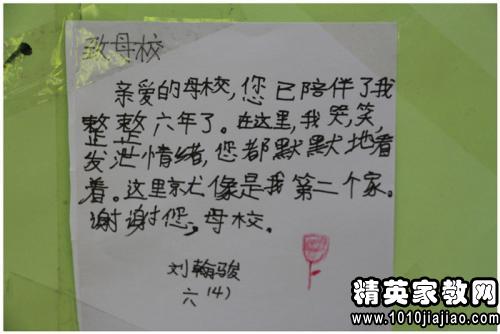 致母校
亲爱的母校,您已陪伴了我
整整六年了。在这里,我哭笑,
发泄情绪,您都默默地看
着。这里就像是我第二个家。
谢谢您,母校。
刘翰骏
六(4)
精英家教网
www.1010jiajiao.com